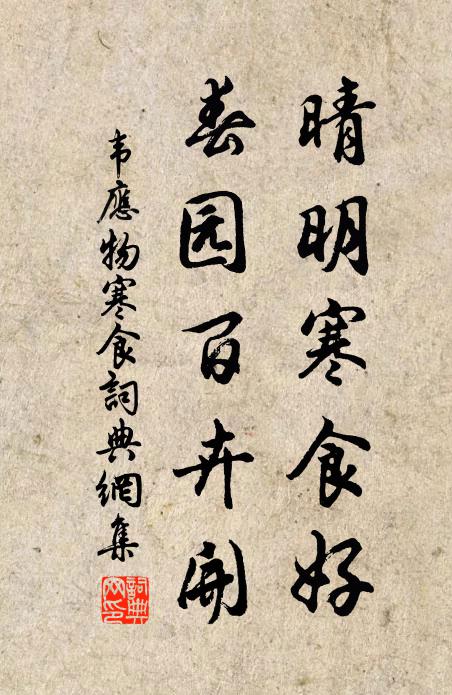 晴明寒食好
春园百卉開
韦應物寒食詞典網集
詞典网印